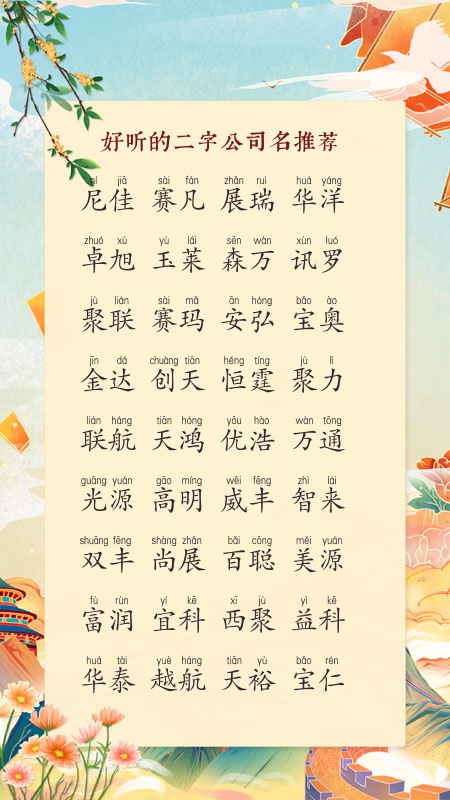 好听的二字公司名推荐
ní jiā sài fán zhǎn ruì huá yáng
尼佳 赛凡 展瑞 华洋
zhuó xù yù lái sēn wàn xùn luó
卓旭 玉莱 森万 讯罗
jù lián sài mǎ ān hóng bǎo ào
聚联 赛玛 安弘 宝奥
jīn dá chuàng tiān héng tíng jù lì
金达 创天 恒霆 聚力
lián háng tiān hóng yōu hào wàn tōng
联航 天鸿 优浩 万通
guāng yuán gāo míng wēi fēng zhì lái
光源 高明 威丰 智来
shuāng fēng shàng zhǎn bǎi cōng měi yuán
双丰 尚展 百聪 美源
fù rùn yí kē xī jù yì kē
富润 宜科 西聚 益科
huá tài yuè háng tiān yù bǎo rén
华泰 越航 天裕 宝仁